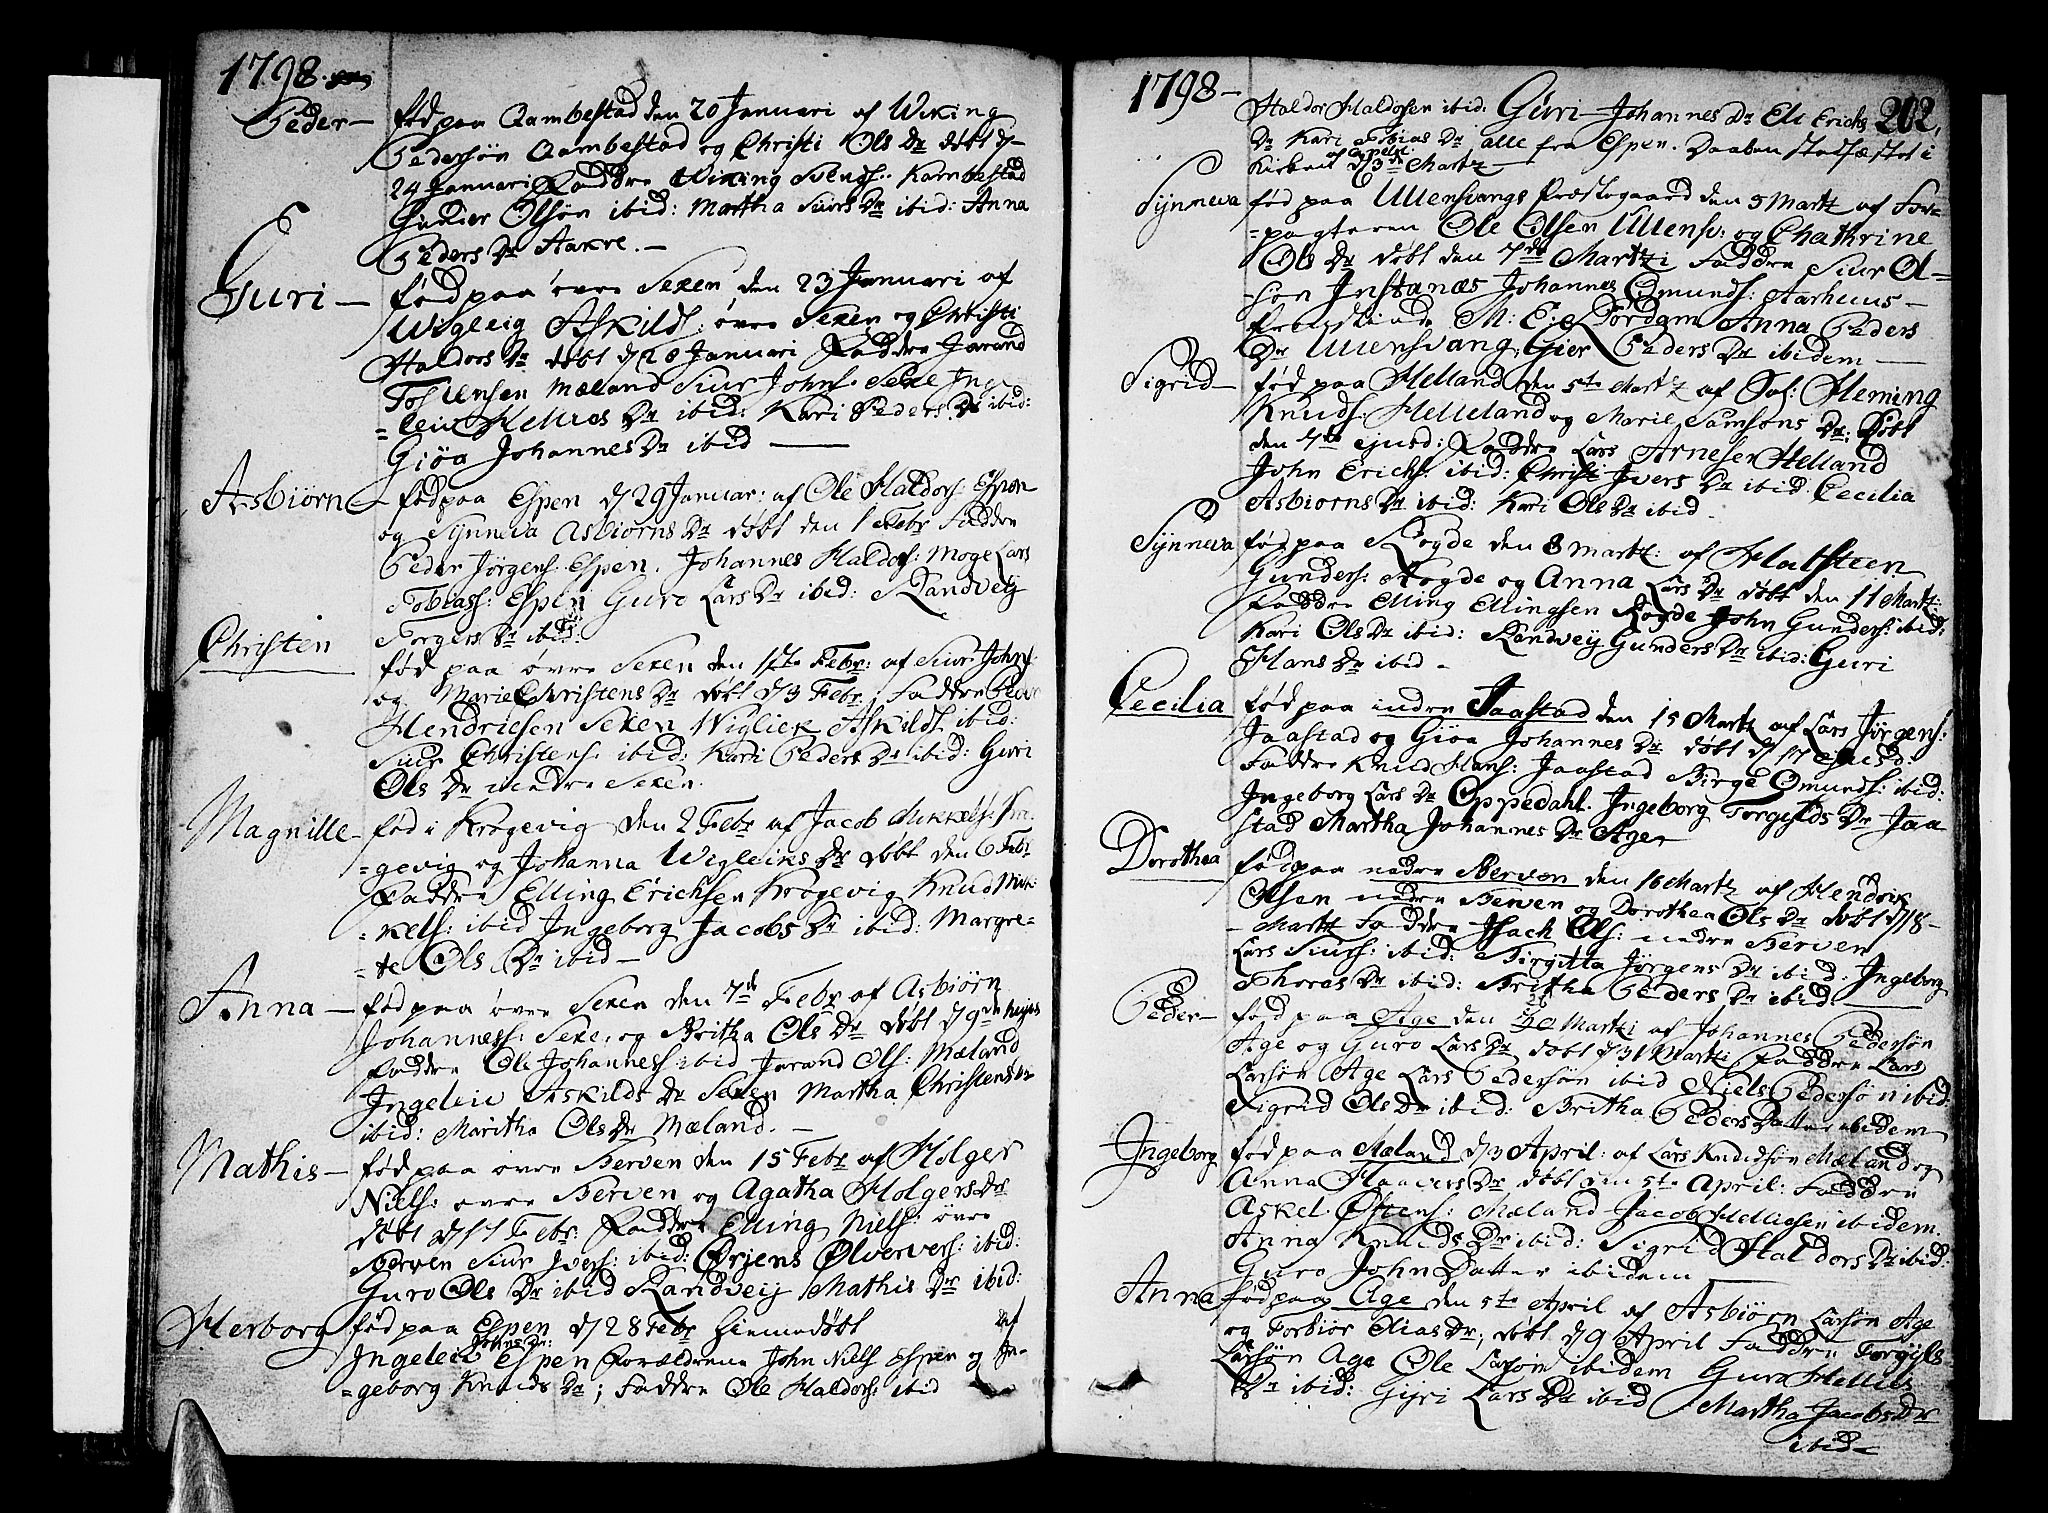 1798.
Peder — født paa Aambestad den 20 Januari af Wiking
Pedersøn Aambestad og Christi Ols Dr døbt d
24 Januari Faddre Wiking Svends: Kambestad
Gunder Olsøn ibid: Martha Siurs Dr ibid: Anna
Peders Dr Aakre. —
Guri — født paa øvre Sexen den 23 Januari af
Wigleig Askilds: øvre Sexen og Christi
Haldors Dr døbt d 28 Januari Faddre Jarand
Mæland Siur Johns: Sexe Inge
=leiv Hellies Dr ibid: Kari Peders Dr ibid:
Giøa Johannes Dr ibid —
Asbiørn — født paa Espen d 29 Januar: af Ole Haldors: Espen
og Synneva Asbiørns Dr døbt den 1 Febr Faddre
Peder Jørgens: Espen. Johannes Haldors: Moge Lars
Tobiass: Espen Guro Lars Dr ibid: Randveij
Torgers Dr ibid:
Christen
født paa øvre Sexen den 1ste Febr: af Siur Johns:
og Marie Christens Dr døbt d 3 Febr: Faddre Peder
Hendriksen Sexen Wigliek Askilds: ibid:
Siur Christens: ibid: Kari Peders Dr ibid: Guri
Ols Dr nedre Sexen.
Magnille — fød i Krogevig den 2 Febr af Jacob Mikkels: Kro
=gevig og Johanna Wigleiks Dr døbt den 6 Febr
Faddre Elling Erichsen Krogevig Knud Mik
=kels: ibid Ingeborg Jacobs Dr ibid: Margre=
=te Ols Dr ibid —
Anna — født paa øvre Sexen den 7de Febr af Asbiørn
Johanness: Sexe, og Britha Ols Dr døbt d 9de hujus
Faddre Ole Johanness ibid Jarand Ols: Mæland
Ingeleiv Askilds Dr Sexen Martha Christens Dr
ibid: Maritha Ols Dr Mæland. —
Mathis — født paa øvre Berven den 15 Febr af Holger
Niels: øvre Berven og Agatha Holgers Dr
døbt d 17 Febr: Faddre Elling Niels: øvre
Berven Siur Ivers: ibid: Ørjens Ølververs: ibid:
Guro Ols Dr ibid Randveij Mathis Dr ibid:
Herborg født paa Espen d 28 Febr hiemmedøbt af
Ingeleiv Johns Dr: Espen Forældrene John Niels Espen og In=
=geborg Knuds Dr; Faddre Ole Haldors: ibid
1798 —
202.
Haldor Haldorsen ibid: Guri Johannes Dr Eli Erichs
Dr Kari Tobias Dr, alle fra Espen. Daaben stadfæstet i
Kirken af Capeln: d 3de Martz —
Synneva født paa Ullensvangs Præstegaard den 5 Martz af For=
=pagteren Ole Olsen Ullensv: og Chathrine
Ols Dr døbt den 7de Martzi Faddre Siur Ol=
=søn Instanæs Johannes Omunds: Aarhuus —
M: Anna Peders
Dr Ullensvang, Gier Peders Dr ibidem —
Sigrid — født paa Helland den 5te Martz af Sol: Fleming
Knuds: Helleland og Marie Samsons Dr: Døbt
den 7de ejusd: Faddre Lars Arnesen Helland
John Erichs: ibid: Christi Ivers Dr ibid Cecilia
Asbiorns Dr ibid: Kari Ols Dr ibid
Synneva født paa Rogde den 8 Martz: af Halsteen
Gunders: Rogde og Anna Lars Dr døbt den 11 Martz:
Faddre Elling Ellingsen Rogde John Gunders: ibid:
Kari Ols Dr ibid: Randveij Gunders Dr ibid: Guri
Hans Dr ibid —
Cecilia født paa indre Jaastad den 15 Martz af Lars Jørgens:
Jaastad og Gioa Johannes Dr døbt d 17 ejusd:
Faddre Knud Hans: Jaastad Birge Omunds: ibid:
Ingeborg Lars Dr Oppedahl. Ingeborg Torgilds Dr Jaa
stad Martha Johannes Dr Age
Dorothea født paa nedre Berven den 16 Martz af Hendrik
Olsen nedre Berven og Dorothea Ols Dr døbt d 18 —
— Martz Faddre Isach Ols: nedre Berven
Lars Siurs: ibid: Birgitta Jørgens Dr ibid: Ingeborg
Thores Dr ibid: Britha Peders Dr ibid:
Peder — født paa Age den Martzi af Johannes Pedersøn
Age og Guro Lars Dr døbt d 31 Martzi Faddre Lars
Larsøn Age Lars Pedersøn ibid Niels Pedersøn ibid:
Sigrid Ols Dr ibid: Britha Peders Datter ibidem
Ingeborg født paa Mæland d 3 April: af Lars Knudsøn Mæland og
Anna Haavers Dr døbt den 5te April: Faddre
Askel Østens: Mæland Jacob Helliesen ibidem.
Anna Knuds Dr ibid: Sigrid Haldors Dr ibid:
Guro John Datter ibidem
Anna født paa Age den 5te April af Asbiørn Larsøn Age
og Torbior Elias Dr, døbt d 9 April Faddre Torgils
Larsøn Age Ole Larsøn ibidem Guro Hellies
Dr ibid: Gijri Lars Dr ibid Martha Jacobs Dr
ibid —